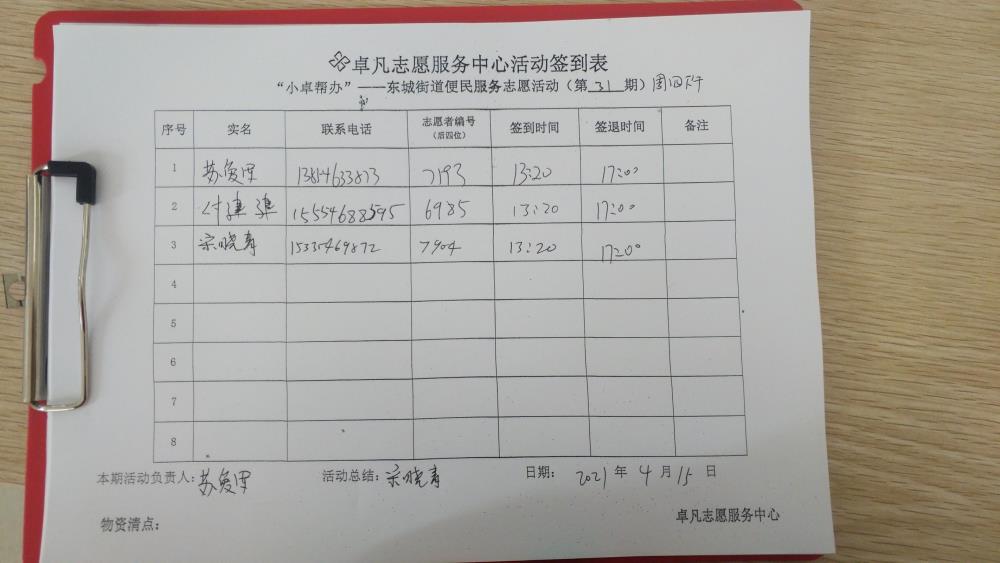 卓凡志愿服务中心活动签到表
“小卓帮办”——东城街道便民服务志愿活动（第 31 期）周四下午
序号 实名 联系电话 志愿者编号（后四位） 签到时间 签退时间 备注
1 苏 13814633873 7193 13:20 17:00
2 付建建 15554688595 6985 13:20 17:00
3 宗晓青 15335469872 7904 13:20 17:00
4
5
6
7
8
本期活动负责人：苏 活动总结：宗晓青 日期： 2021 年 4 月 15 日
物资清点： 卓凡志愿服务中心